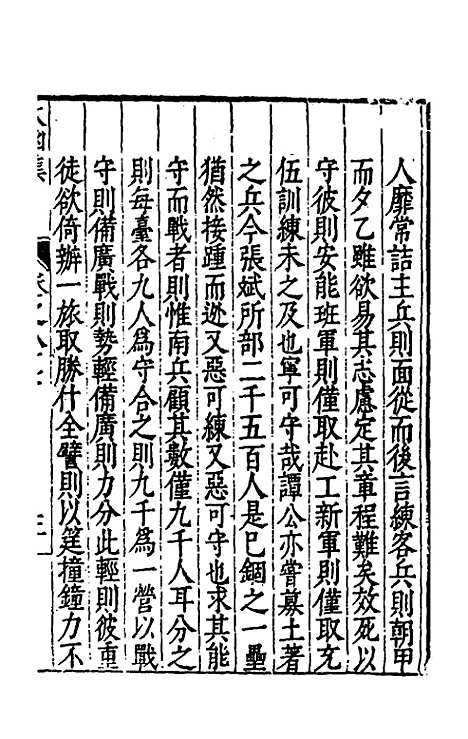 人靡常詰主兵則面從而後言練客兵則朝甲
而夕乙雖欲易其志慮定其章程難矣效死以
守彼則安能班軍則僅取赴工新軍則僅取充
伍訓練未之及也寧可守哉譚公亦嘗募土著
之兵今張斌所部二千五百人是已錮之一壘
猶然接踵而逊又惡可練又惡可守也求其能
守而戰者則惟南兵顧其數僅九千人耳分之
則每臺各九人為守合之則九千為一營以戰
守則備廣戰則勢輕備廣則力分此輕則彼重
徒欲倚辦一旅取勝什全譬則以莛撞鐘力不
太函集